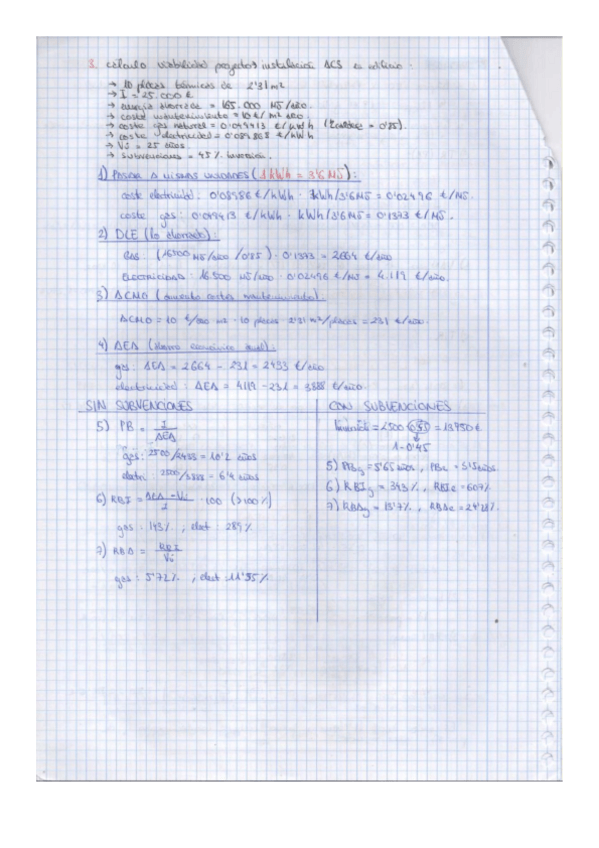 3. cálculo viabilidad proyectos instalación ACS en edificio:
→ 10 placas térmicas de 2'31 m²
→ I = 25.000 €
→ energía ahorrada = 165.000 MJ/año.
→ coste mantenimiento = 10 €/m² año.
→ coste gas natural = 0'049413 €/kWh (ηcaldera = 0'85).
→ coste electricidad = 0'089863 €/kWh
→ Vu = 25 años
→ subvenciones = 45% inversión.
1) PASAR A MISMAS UNIDADES (1 kWh = 3'6 MJ):
coste electricidad: 0'08986 €/kWh · kWh/3'6MJ = 0'02496 €/MJ.
coste gas: 0'049413 €/kWh · kWh/3'6MJ = 0'1373 €/MJ.
2) DCE (lo ahorrado):
GAS: (16500 MJ/año /0'85) · 0'1373 = 2664 €/año
ELECTRICIDAD: 16.500 MJ/año · 0'02496 €/MJ = 4.119 €/año.
3) ΔCMO (aumento costes mantenimiento)
ΔCMO = 10 €/año m² · 10 placas · 2'31 m²/placas = 231 €/año.
4) AEA (ahorro económico anual):
gas: AEA = 2664 - 231 = 2433 €/año
electricidad: AEA = 4119 - 231 = 3,888 €/año.
SIN SUBVENCIONES
5) PB = I / AEA
gas: 2500/2433 = 10'2 años
electri: 2500/3888 = 6'4 años
6) RBI = AEA - Vu / I · 100 (>100%)
gas: 143%, elect: 289%
7) RBA = RBI / Vu
gas: 5'72%, elect: 11'55%
CON SUBVENCIONES
= 2500 · 0'55 = 13750 €
1-0'45
5) PBg = 5'65 años, PBe = 5'15 años
6) RBIg = 343%, RBIe = 607%
7) RBAg = 13'7%, RBAe = 24'28%